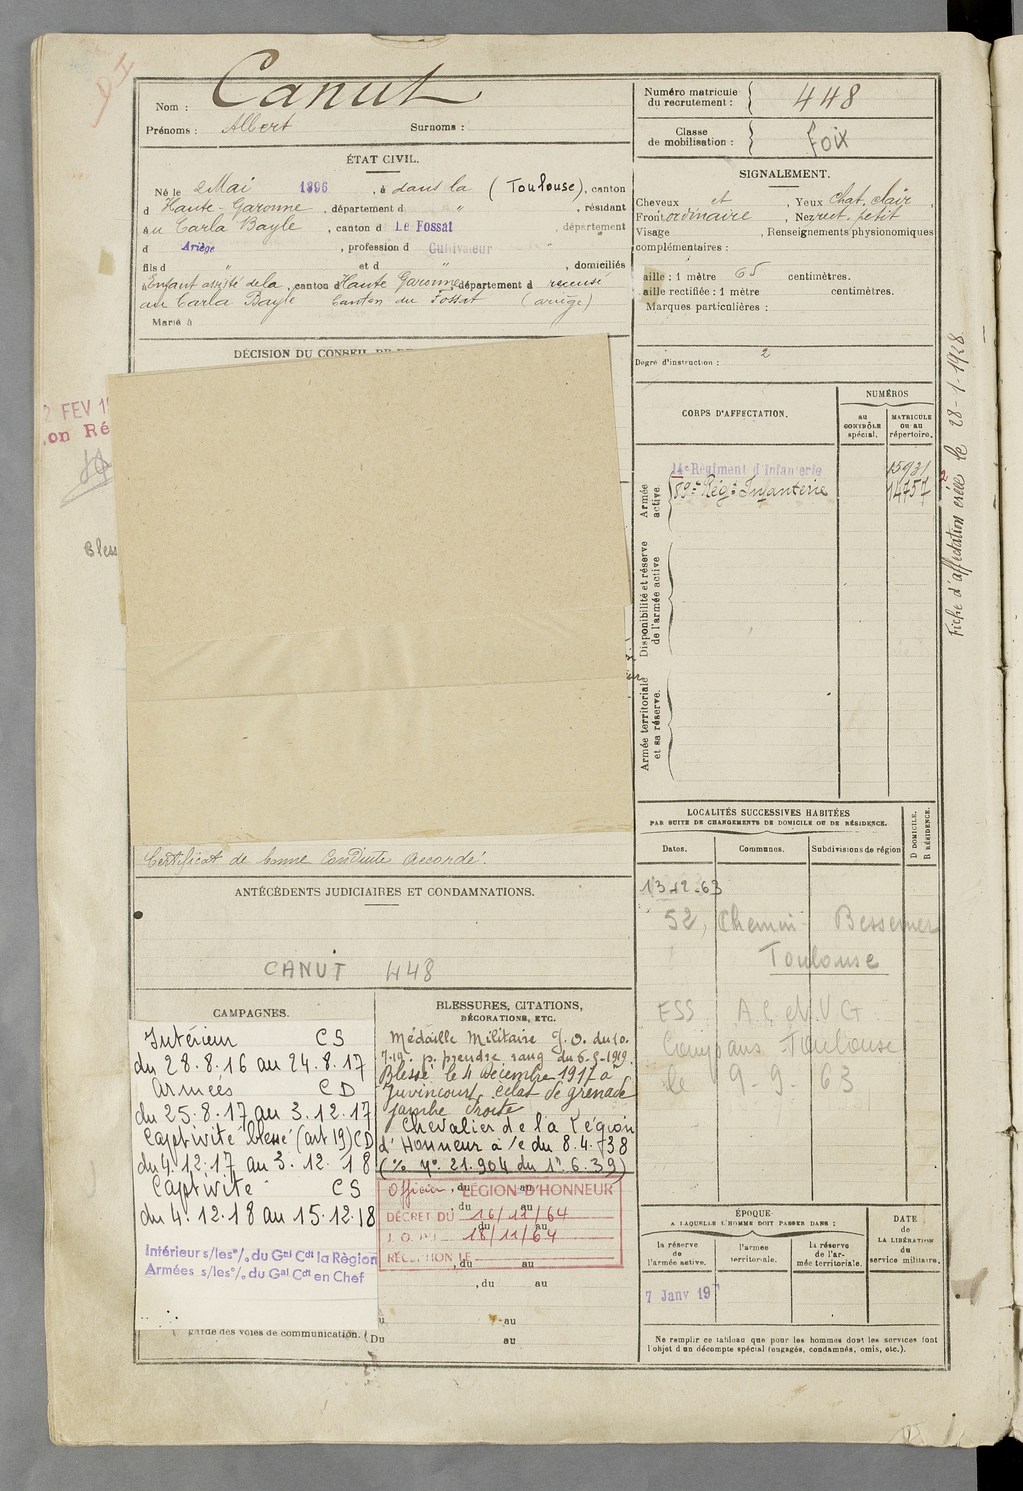 Nom : Canut
Prénoms : Albert Surnoms :
ÉTAT CIVIL.
Né le 2 Mai 1896, à dans la (Toulouse), canton
d Haute-Garonne, département d " , résidant
à au Carla Bayle, canton d Le Fossat, département
d Ariège, profession d Cultivateur
fils d " et d " , domiciliés
à Enfant assisté de la, canton d Haute Garonne, département d recensé
au Carla Bayle Canton du Fossat (ariège)
Marié à
DÉCISION DU CONSEIL DE
2 FEV 1
on Ré
Bless
Certificat de bonne Conduite accordé.
ANTÉCÉDENTS JUDICIAIRES ET CONDAMNATIONS.
CANUT 448
CAMPAGNES.
Intérieur CS
du 28.8.16 au 24.8.17
Armées CD
du 25.8.17 au 3.12.17
Captivité blessé (art 19) CD
du 4.12.17 au 3.12.18
Captivité CS
du 4.12.18 au 15.12.18
Intérieur s/les °/. du Gal Cdt la Région
Armées s/les °/. du Gal Cdt en Chef
garde des voies de communication. (Du
BLESSURES, CITATIONS,
DÉCORATIONS, ETC.
Médaille Militaire J.O. du 10.
7.19. p. prendre rang du 6-9-1919.
Blessé le 4 Décembre 1917 à
Juvincourt, éclat de grenade
jambe droite
Chevalier de la Légion
d'Honneur à/c du 8.4.38
(% No. 21.904 du 1er.6.39)
Officier, du LÉGION D'HONNEUR au
DÉCRET DU 16/12/64
J.O. DU 18/11/64
RÉCEPTION LE , du au
, du au
u au
au
Numéro matricule
du recrutement : 448
Classe
de mobilisation : Foix
SIGNALEMENT.
Cheveux et , Yeux Chat. clair,
Front ordinaire, Nez rect. petit
Visage , Renseignements physionomiques
complémentaires :
aille : 1 mètre 65 centimètres.
aille rectifiée : 1 mètre centimètres.
Marques particulières :
Degré d'instruction : 2
CORPS D'AFFECTATION.
NUMÉROS
au
CONTRÔLE
spécial.
MATRICULE
OU AU
répertoire.
Armée
active.
14e Régiment d'Infanterie 15931
89e Régt Infanterie 14757
Disponibilité et réserve
de l'armée active
Armée territoriale
et sa réserve.
Fiche d'affectation créée le 28-1-1928.
LOCALITÉS SUCCESSIVES HABITÉES
PAR SUITE DE CHANGEMENTS DE DOMICILE OU DE RÉSIDENCE.
D DOMICILE.
R RÉSIDENCE.
Dates. Communes. Subdivisions de région
13-12-63
52, Chemin Bessemer
Toulouse
ESS A.C et V.G
Compans Toulouse
le 9-9-63
ÉPOQUE
A LAQUELLE L'HOMME DOIT PASSER DANS :
la réserve
de
l'armée active.
l'armée
territoriale.
la réserve
de l'ar-
mée territoriale.
DATE
de
LA LIBÉRATION
du
service militaire.
7 Janv 19
Ne remplir ce tableau que pour les hommes dont les services font
l'objet d'un décompte spécial (engagés, condamnés, omis, etc.).